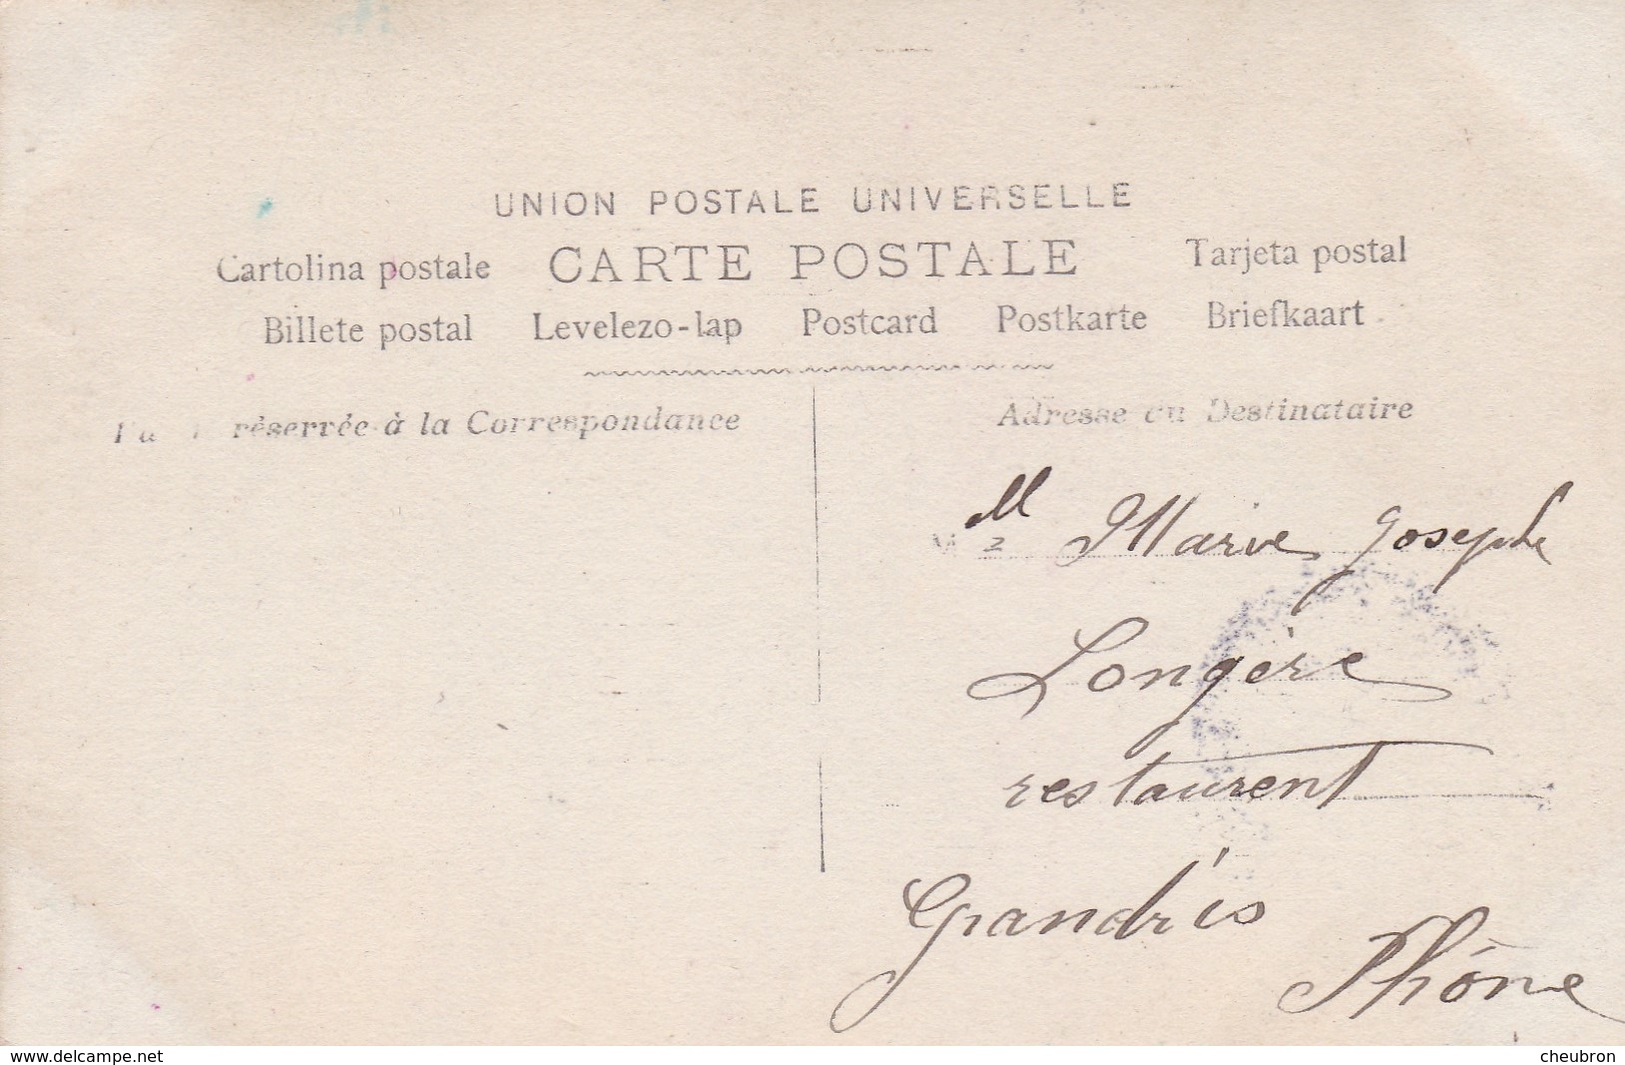 UNION POSTALE UNIVERSELLE
Cartolina postale CARTE POSTALE Tarjeta postal
Billete postal Levelezo-lap Postcard Postkarte Briefkaart
réservée à la Correspondance
Adresse du Destinataire
M Marie Joseph
Longère
restaurent
Grandris
Rhône
www.delcampe.net
cheubron